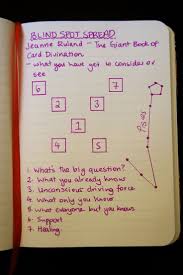 BLIND SPOT SPREAD
Jeanne Ruland - The Giant Book of
Card Divination
- what you have yet to consider or
see
6
7
2
3
1
4
5
Pisces
1. What's the big question?
2. What you already know
3. Unconscious driving force
4. What only you know
5. What everyone but you knows
6. Support
7. Healing